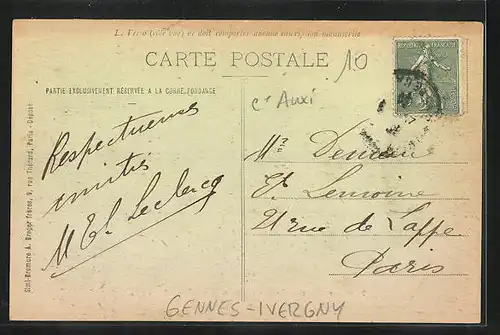 L. Verso (côté vue) ne doit comporter aucune inscription manuscrite
CARTE POSTALE
10
RÉPUBLIQUE FRANÇAISE
PARTIE EXCLUSIVEMENT RÉSERVÉE A LA CORRESPONDANCE
Auxi
Respectueuses
amitiés
Leclercq
Lemoine
rue de Lappe
Paris
Simi-Bromure A. Breger Frères, 9, rue Thénard, Paris - Déposé
GENNES-IVERGNY